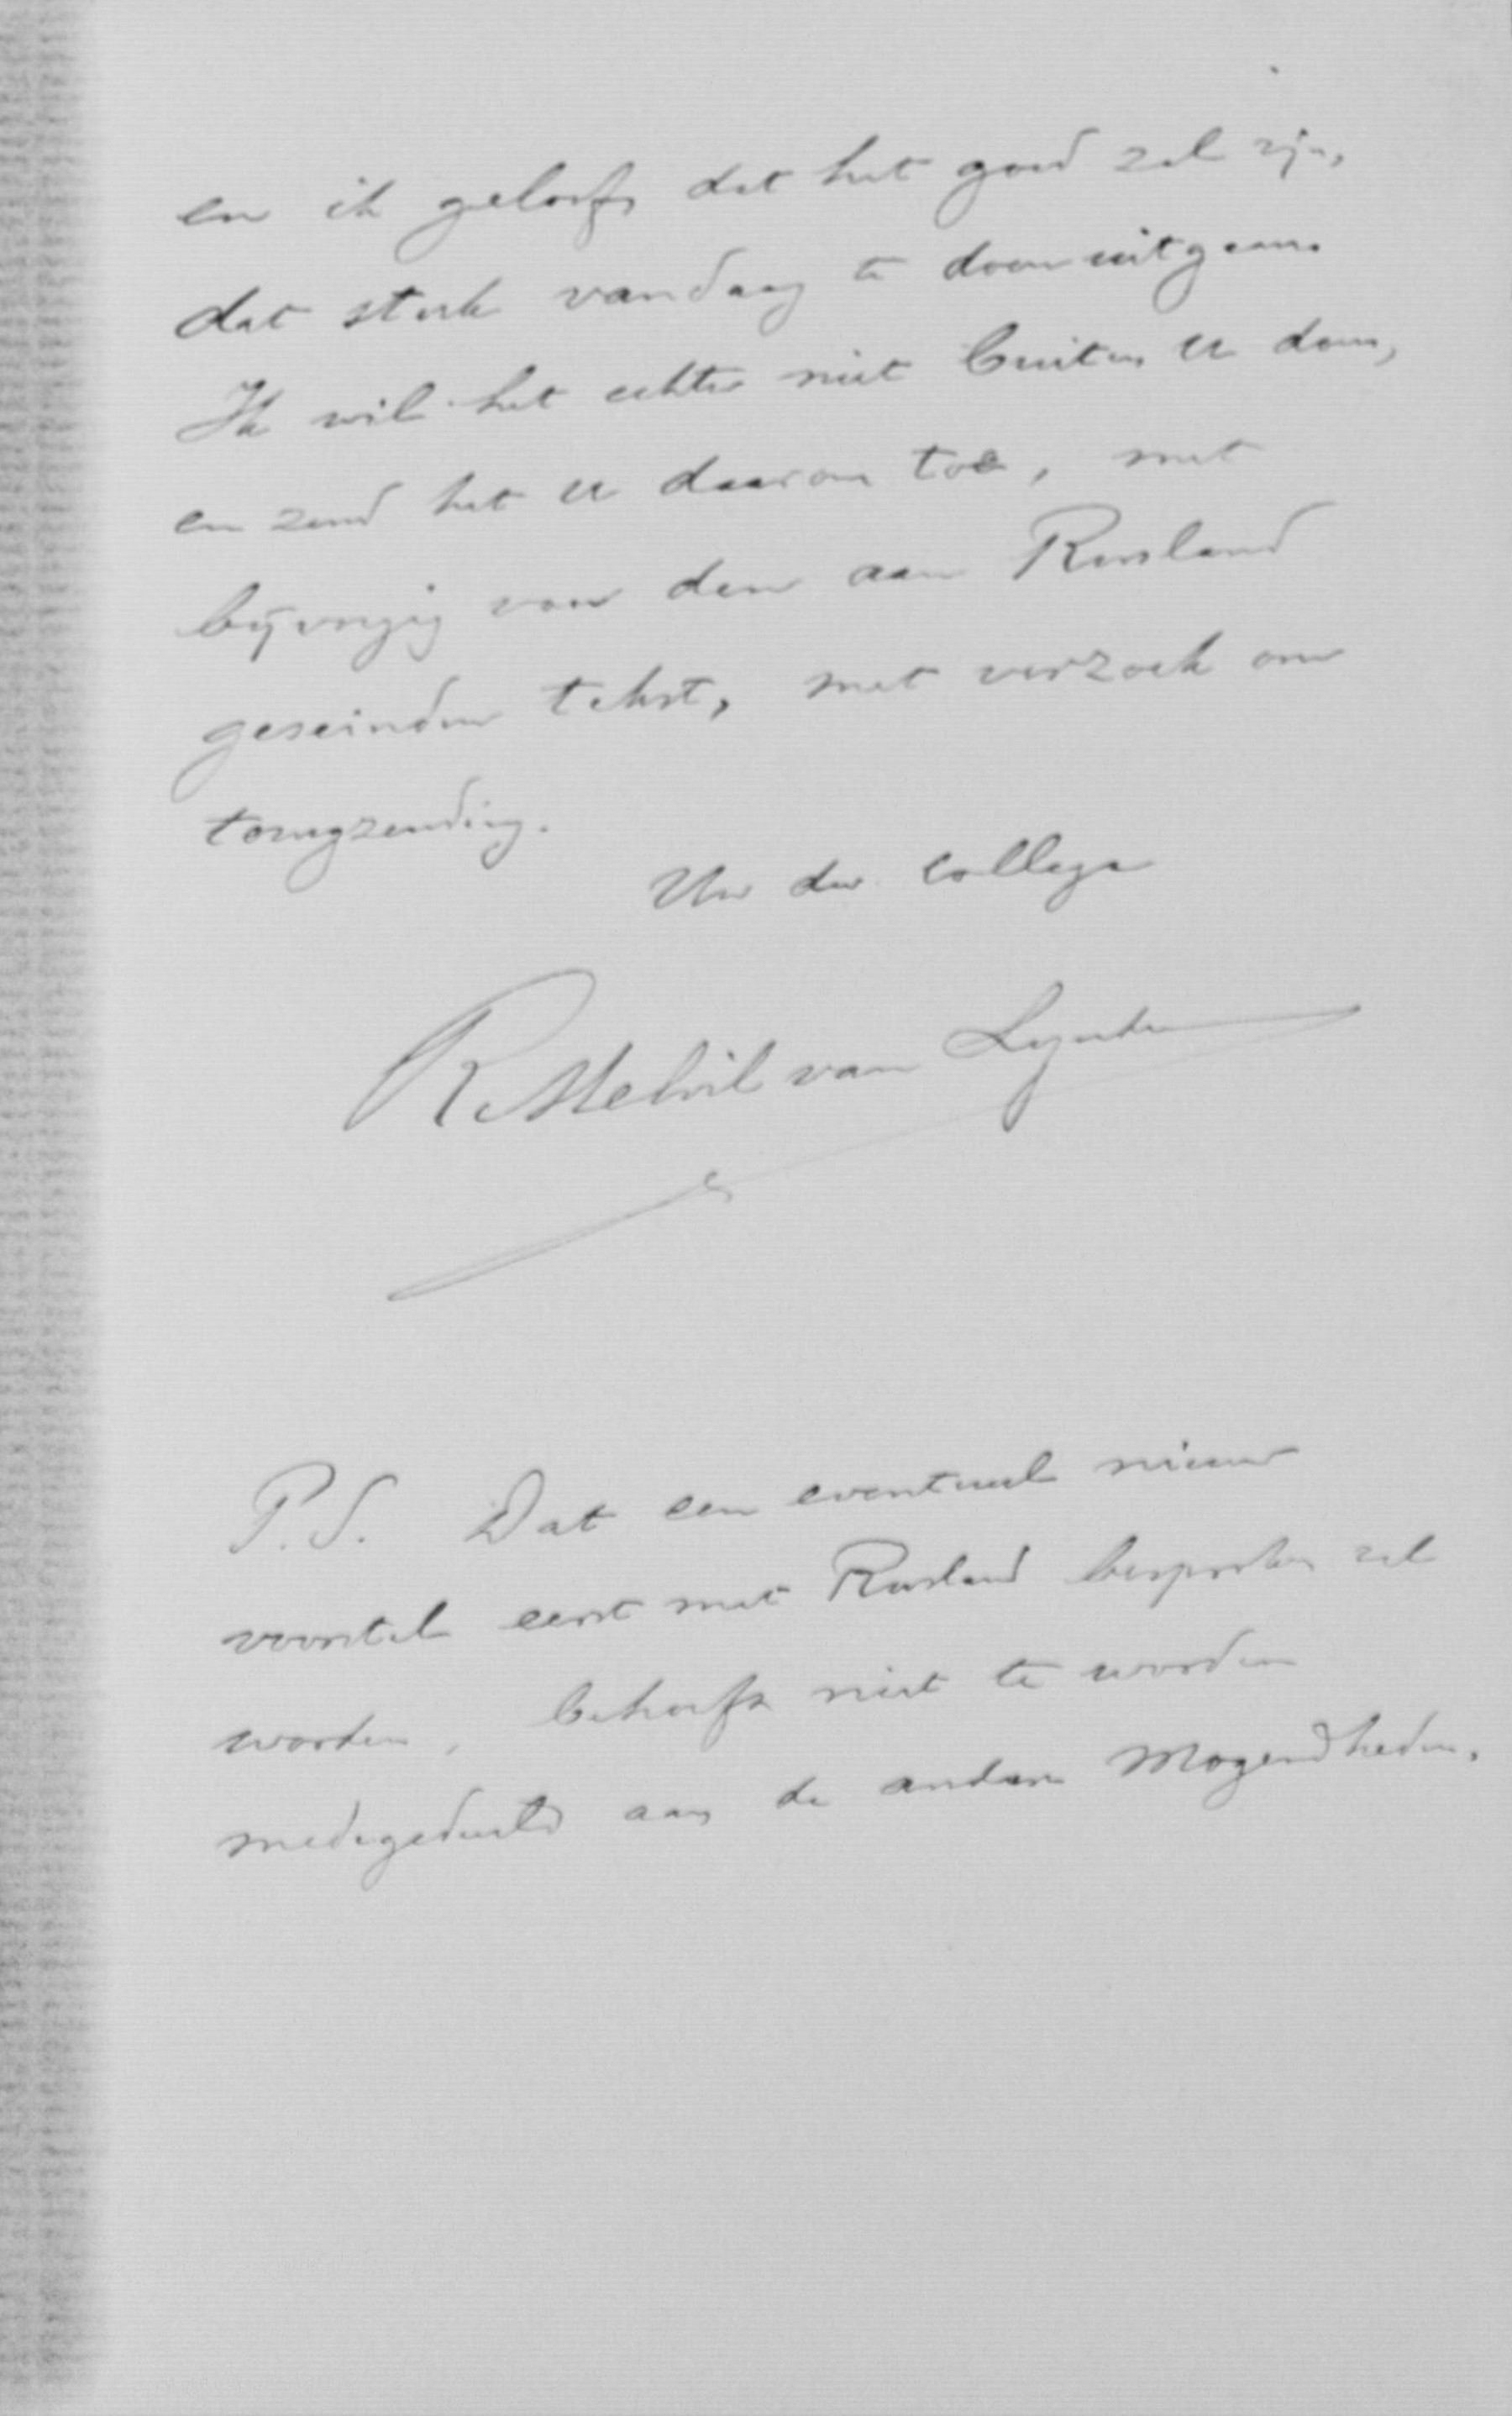 en ik geloof, dat het goed zal zijn,
dat stuk vandaag te doen uitgaan.
Ik wil het echter niet buiten U doen,
en zend het U daarom toe, met
bijvoeging van den aan Rusland
geseinden tekst, met verzoek om
terugzending.
Uw dw. collega
R. Melvil van Lynden
P.S. Dat een eventueel nieuw
voorstel eerst met Rusland besproken zal
worden, behoeft niet te worden
medegedeeld aan de andere Mogendheden.